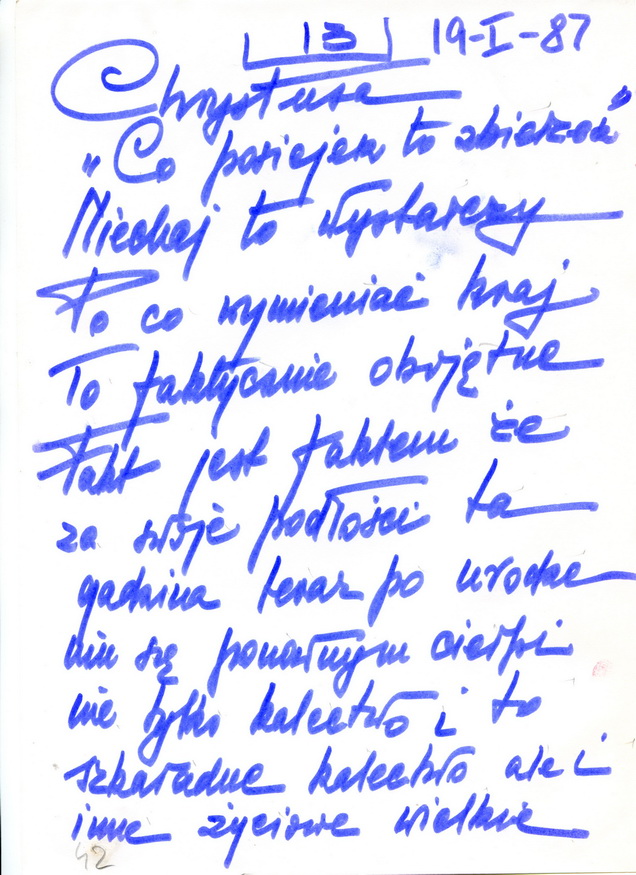 13 19-I-87
Chrystusa
"Co posiejesz to zbierzesz"
Niechaj to wystarczy
Po co wymieniać kraj
To faktycznie obojętne
Fakt jest faktem że
za swoje podłości ta
gadzina teraz po urodze
niu się ponownym cierpi
nie tylko kalectwo i to
szkaradne kalectwo ale i
inne życiowe wielkie
42